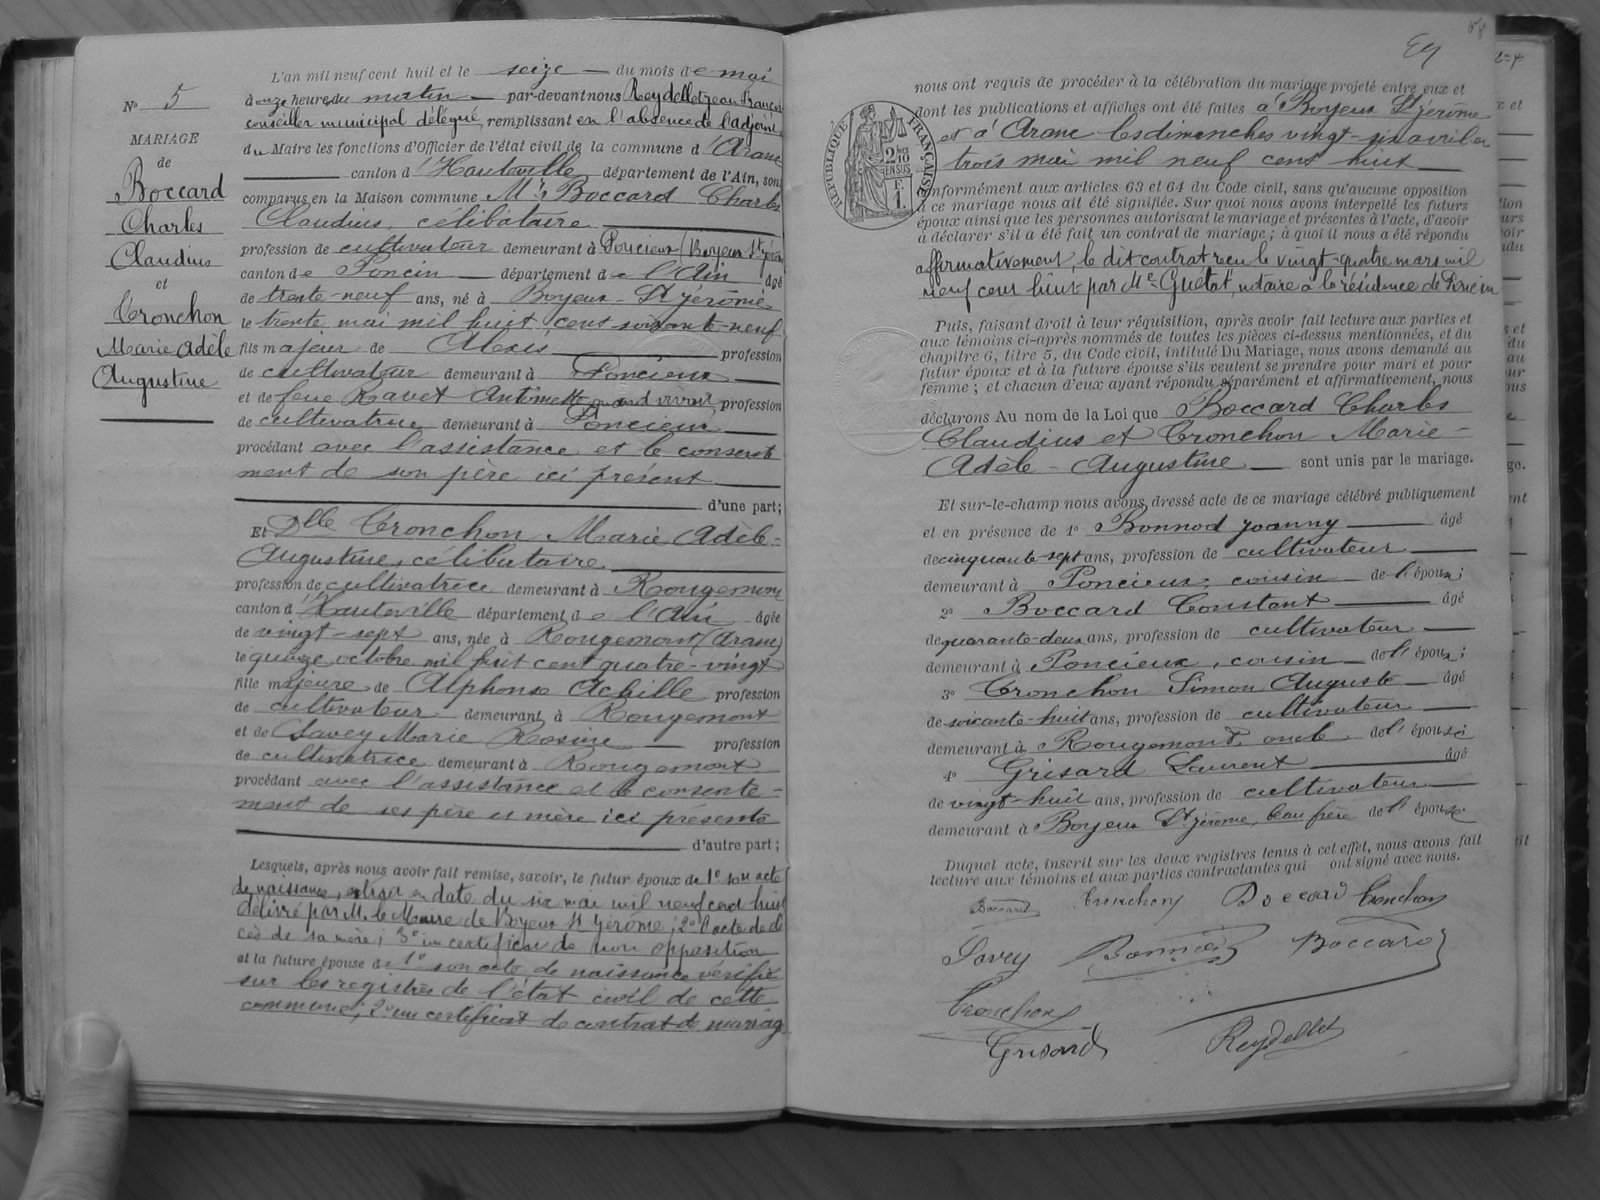 N° 5
MARIAGE
de
Boccard
Charles
Claudius
et
Tronchon
Marie Adèle
Augustine
L'an mil neuf cent huit et le seize du mois de mai
à onze heures du matin par-devant nous Reydellet Jean François
conseiller municipal délégué, remplissant en l'absence de l'adjoint
du Maire les fonctions d'Officier de l'état civil de la commune d'Aranc
canton d'Hauteville département de l'Ain, sont
comparus en la Maison commune Mr Boccard Charles
Claudius, célibataire
profession de cultivateur demeurant à Poncieux (Boyeux St Jérôme
canton de Poncin département de l'Ain âgé
de trente-neuf ans, né à Boyeux-St Jérôme
le trente mai mil huit cent soixante-neuf
fils majeur de Alexis profession
de cultivateur demeurant à Poncieux
et de feue Ravet Antoinette quand vivait, profession
de cultivatrice demeurant à Poncieux
procédant avec l'assistance et le consente
ment de son père ici présent
d'une part;
Et Dlle Tronchon Marie Adèle-
Augustine, célibataire
profession de cultivatrice demeurant à Rougemont
canton d'Hauteville département de l'Ain âgée
de vingt-sept ans, née à Rougemont (Aranc)
le quinze octobre mil huit cent quatre-vingt
fille majeure de Alphonse Achille profession
de cultivateur demeurant à Rougemont
et de Savey Marie Rosine profession
de cultivatrice demeurant à Rougemont
procédant avec l'assistance et le consente-
ment de ses père et mère ici présents
d'autre part;
Lesquels, après nous avoir fait remise, savoir, le futur époux de 1° son acte
de naissance, extrait en date du six mai mil neuf cent huit
délivré par M. le Maire de Boyeux St Jérôme; 2° l'acte de dé
cès de sa mère; 3° un certificat de non opposition
et la future épouse de 1° son acte de naissance vérifié
sur les registres de l'état civil de cette
commune; 2° un certificat de contrat de mariage
59
nous ont requis de procéder à la célébration du mariage projeté entre eux et
dont les publications et affiches ont été faites à Boyeux St Jérôme
et à Aranc les dimanches vingt-six avril et
trois mai mil neuf cent huit
RÉPUBLIQUE FRANÇAISE
conformément aux articles 63 et 64 du Code civil, sans qu'aucune opposition
à ce mariage nous ait été signifiée. Sur quoi nous avons interpellé les futurs
époux ainsi que les personnes autorisant le mariage et présentes à l'acte, d'avoir
à déclarer s'il a été fait un contrat de mariage; à quoi il nous a été répondu
affirmativement, le dit contrat reçu le vingt-quatre mars mil
neuf cent huit par Me Guétat, notaire à la résidence de Poncin
Puis, faisant droit à leur réquisition, après avoir fait lecture aux parties et
aux témoins ci-après nommés de toutes les pièces ci-dessus mentionnées, et du
chapitre 6, titre 5, du Code civil, intitulé Du Mariage, nous avons demandé au
futur époux et à la future épouse s'ils veulent se prendre pour mari et pour
femme; et chacun d'eux ayant répondu séparément et affirmativement, nous
déclarons Au nom de la Loi que Boccard Charles
Claudius et Tronchon Marie-
Adèle-Augustine sont unis par le mariage.
Et sur-le-champ nous avons dressé acte de ce mariage célébré publiquement
et en présence de 1° Bonnod Joanny âgé
de cinquante-sept ans, profession de cultivateur
demeurant à Poncieux, cousin de l'époux;
2° Boccard Constant âgé
de quarante-deux ans, profession de cultivateur
demeurant à Poncieux, cousin de l'époux;
3° Tronchon Simon Auguste âgé
de soixante-huit ans, profession de cultivateur
demeurant à Rougemont, oncle de l'épouse
4° Grisard Laurent âgé
de vingt-huit ans, profession de cultivateur
demeurant à Boyeux St Jérôme, beau frère de l'épouse
Duquel acte, inscrit sur les deux registres tenus à cet effet, nous avons fait
lecture aux témoins et aux parties contractantes qui ont signé avec nous.
Boccard Tronchon Boccard Tronchon
Savey Bonnod Boccard
Tronchon
Grisard Reydellet